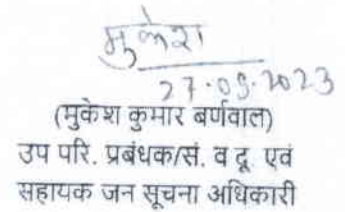 मुकेश
27.09.2023
(मुकेश कुमार बर्णवाल)
उप परि. प्रबंधक/सं. व दू. एवं
सहायक जन सूचना अधिकारी